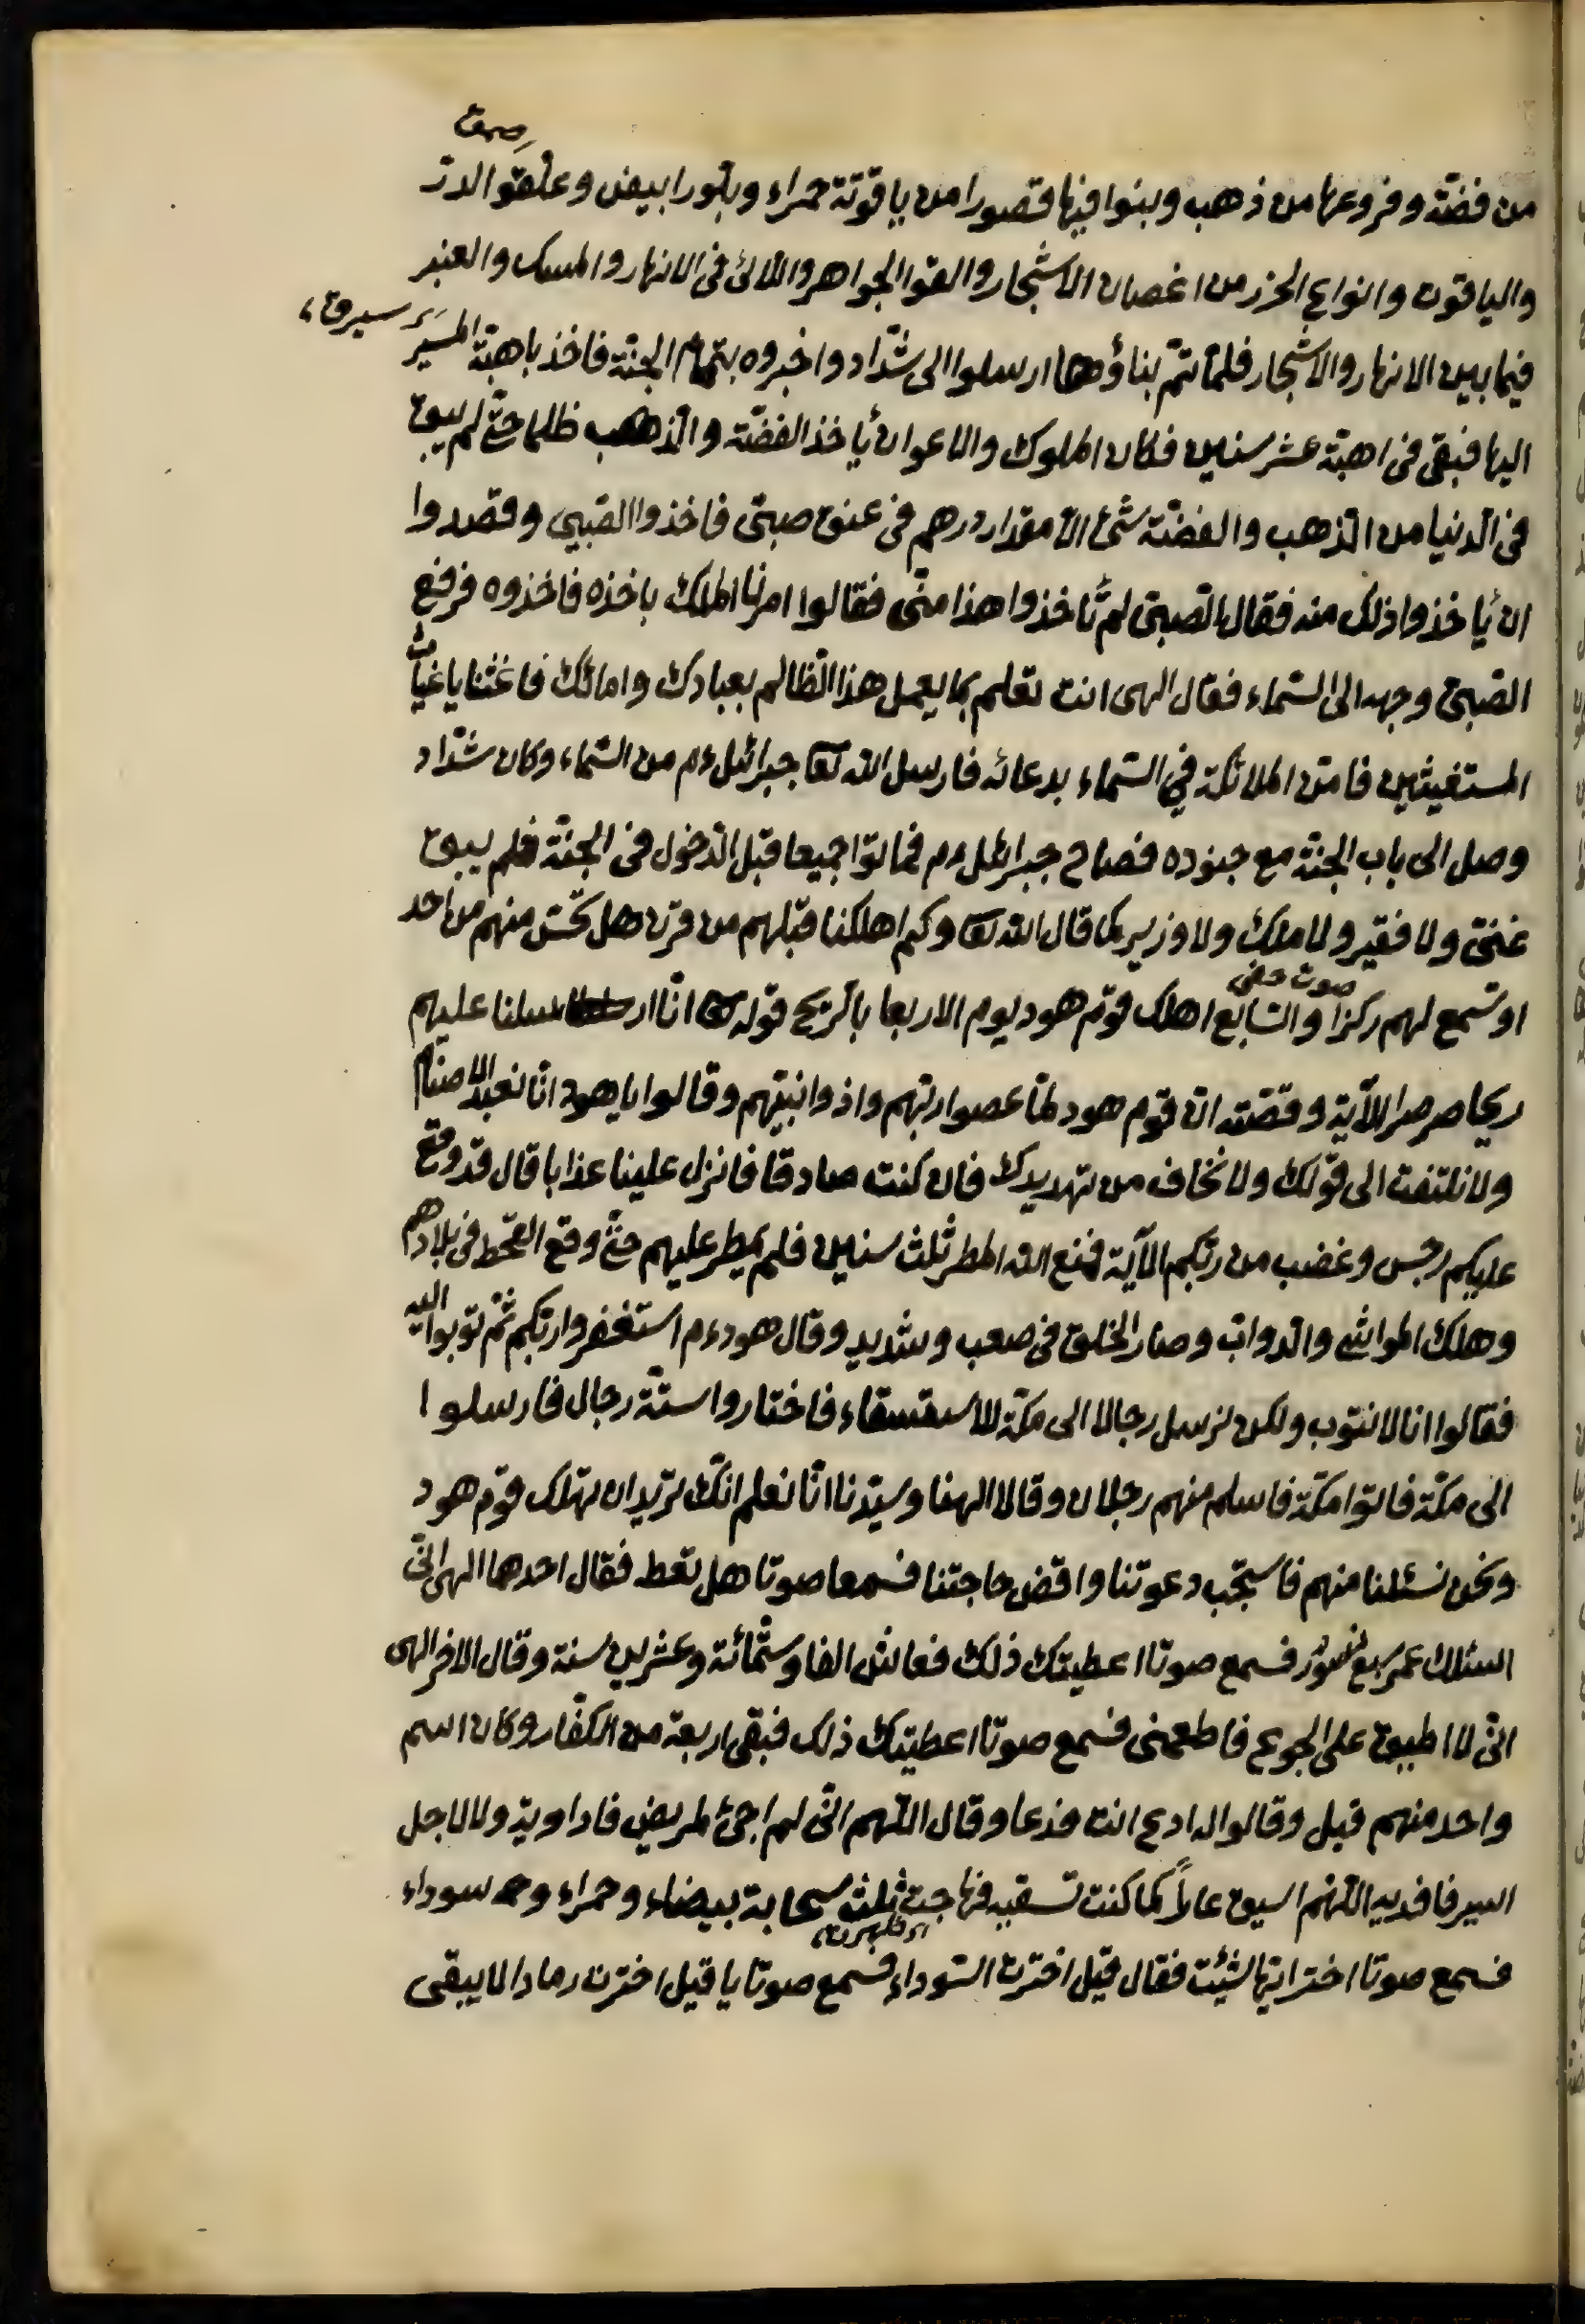 من فضّة وفروعها من ذهب وبنوا فيها قصورا من ياقوتة حمراء وبلّورا بيض وعلّقوا الدرّ
والياقوت وانواع الخرز من اغصان الاشجار والقوا الجواهر واللآلئ فى الانهار والمسك والعنبر
فيما بين الانهار والاشجار فلمّا تمّ بناؤها ارسلوا الى شدّاد واخبروه بتمام الجنّة فاخذ باهبّة المسير
اليها فبقى فى اهبة عشر سنين فكان الملوك والاعوان يأخذ الفضّة والذّهب ظلما حتّى لم يبق
فى الدّنيا من الذّهب والفضّة شئ الّا مقدار درهم فى عنق صبىّ فاخذوا الصّبي وقصدوا
ان يأخذوا ذلك منه فقال الصّبىّ لم تأخذوا هذا منّى فقالوا امرنا الملك باخذه فاخذوه فرفع
الصّبىّ وجهه الى السّماء فقال الهى انت تعلم بما يعمل هذا الظّالم بعبادك وامائك فاغثنا يا غياث
المستغيثين فامّن الملائكة في السّماء بدعائه فارسل الله تعا جبرائيل ءم من السّماء وكان شدّاد
وصل الى باب الجنّة مع جنوده فصاح جبرائيل ءم فماتوا جميعا قبل الدّخول فى الجنّة فلم يبق
غنىّ ولا فقير ولا ملك ولا وزير كما قال الله تعا وكم اهلكنا قبلهم من قرن هل تحسّ منهم من احد
صوت خفى
او تسمع لهم ركزا والسّابع اهلك قوم هود يوم الاربعا بالرّيح قوله تعا انّا ارسلنا عليهم
ريحا صرصرا الآية وقصّته انّ قوم هود لمّا عصوا ربّهم واذوا نبيّهم وقالوا يا هود انّا نعبد الاصنام
ولا نلتفت الى قولك ولا نخاف من تهديدك فان كنت صادقا فانزل علينا عذابا قال قد وقع
عليكم رجس وغضب من ربّكم الآية فمنع الله المطر ثلث سنين فلم يمطر عليهم حتّى وقع القحط فى بلادهم
وهلك المواشى والدّوابّ وصار الخلق فى صعب وشديد وقال هود ءم استغفروا ربّكم ثمّ توبوا اليه
فقالوا انّا لا نتوب ولكن نرسل رجالا الى مكّة للاستسقاء فاختاروا ستّة رجال فارسلوا
الى مكّة فاتوا مكّة فاسلم منهم رجلان وقالا الهنا وسيّدنا انّا نعلم انّك تريد ان تهلك قوم هود
ونحن نسئلنا منهم فاستجب دعوتنا واقض حاجتنا فسمعا صوتا هل تعط فقال احدهما الهى انّى
اسئلك عمر سبع نسور فسمع صوتا اعطيتك ذلك فعاش الفا وستّمائة وعشرين سنة وقال الاخر الهى
انّى لا اطيق على الجوع فاطعمنى فسمع صوتا اعطيتك ذلك فبقى اربعة من الكفّار وكان اسم
واحد منهم قيل وقالوا له ادع انت فدعا وقال اللّهم انّى لم اجئ لمريض فاداويه ولا لاجل
اسير فافديه اللّهم اسق عادًا كما كنت تسقيه فهاجت ثلث سحابة بيضاء وحمراء وسوداء
فسمع صوتا اختر ايّها شئت فقال قيل اخترت السّوداء فسمع صوتا يا قيل اخترت رمادا لا يبقى